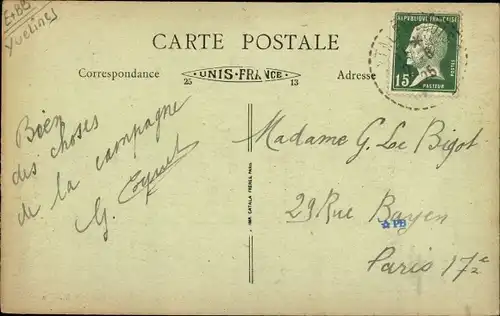 E+BB
Yvelines
CARTE POSTALE
Correspondance
UNIS-FRANCE
25
13
Adresse
REPUBLIQUE FRANÇAISE
15c
POSTES
PASTEUR
25
Bien
des choses
de la campagne
G.
Madame G. Le Bigot
29 Rue Bayen
Paris 17e
IMP. CATALA FRERES, PARIS
☆PB